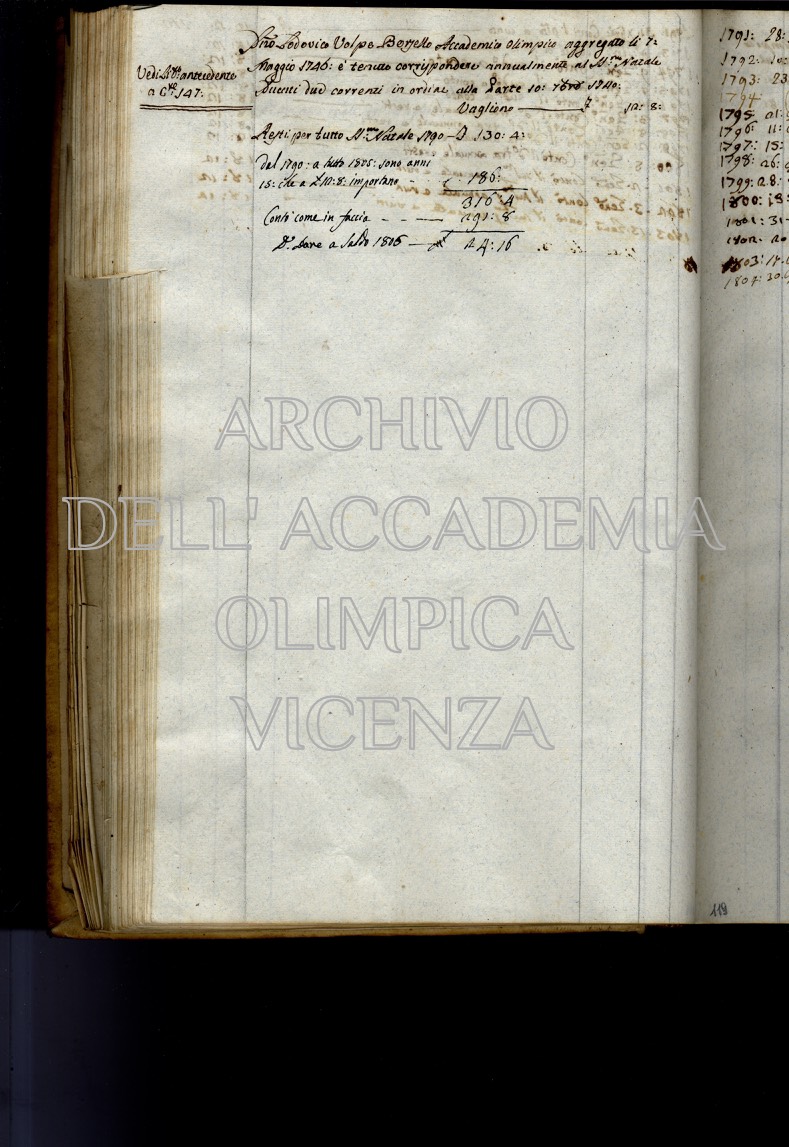 Vedi Lib.º antecedente
a C.te 147:
Sig.r Lodovico Volpe Borsello Accademico Olimpico aggregato li 7:
Maggio 1746: è tenuto corrispondere annualmente al S.mo Natale
Ducati due correnti in ordine alla Parte 10: 1740:
Vagliono 12: 8:
Resti per tutto S.mo Natale 1790 130: 4:
dal 1790: a tutto 1805: sono anni
15: che a L 12: 8: importano 186:
316: 4
Conti come in faccia 291: 8
D.e Dare a Saldo 1805 24: 16
1791: 28:
1792: 10:
1793: 23
1794
1795 21:
1796: 11:
1797: 15:
1798: 26:
1799: 28:
1800: 18:
1801: 31
1802: 20
1803: 17
1804: 30
119
ARCHIVIO
DELL' ACCADEMIA
OLIMPICA
VICENZA